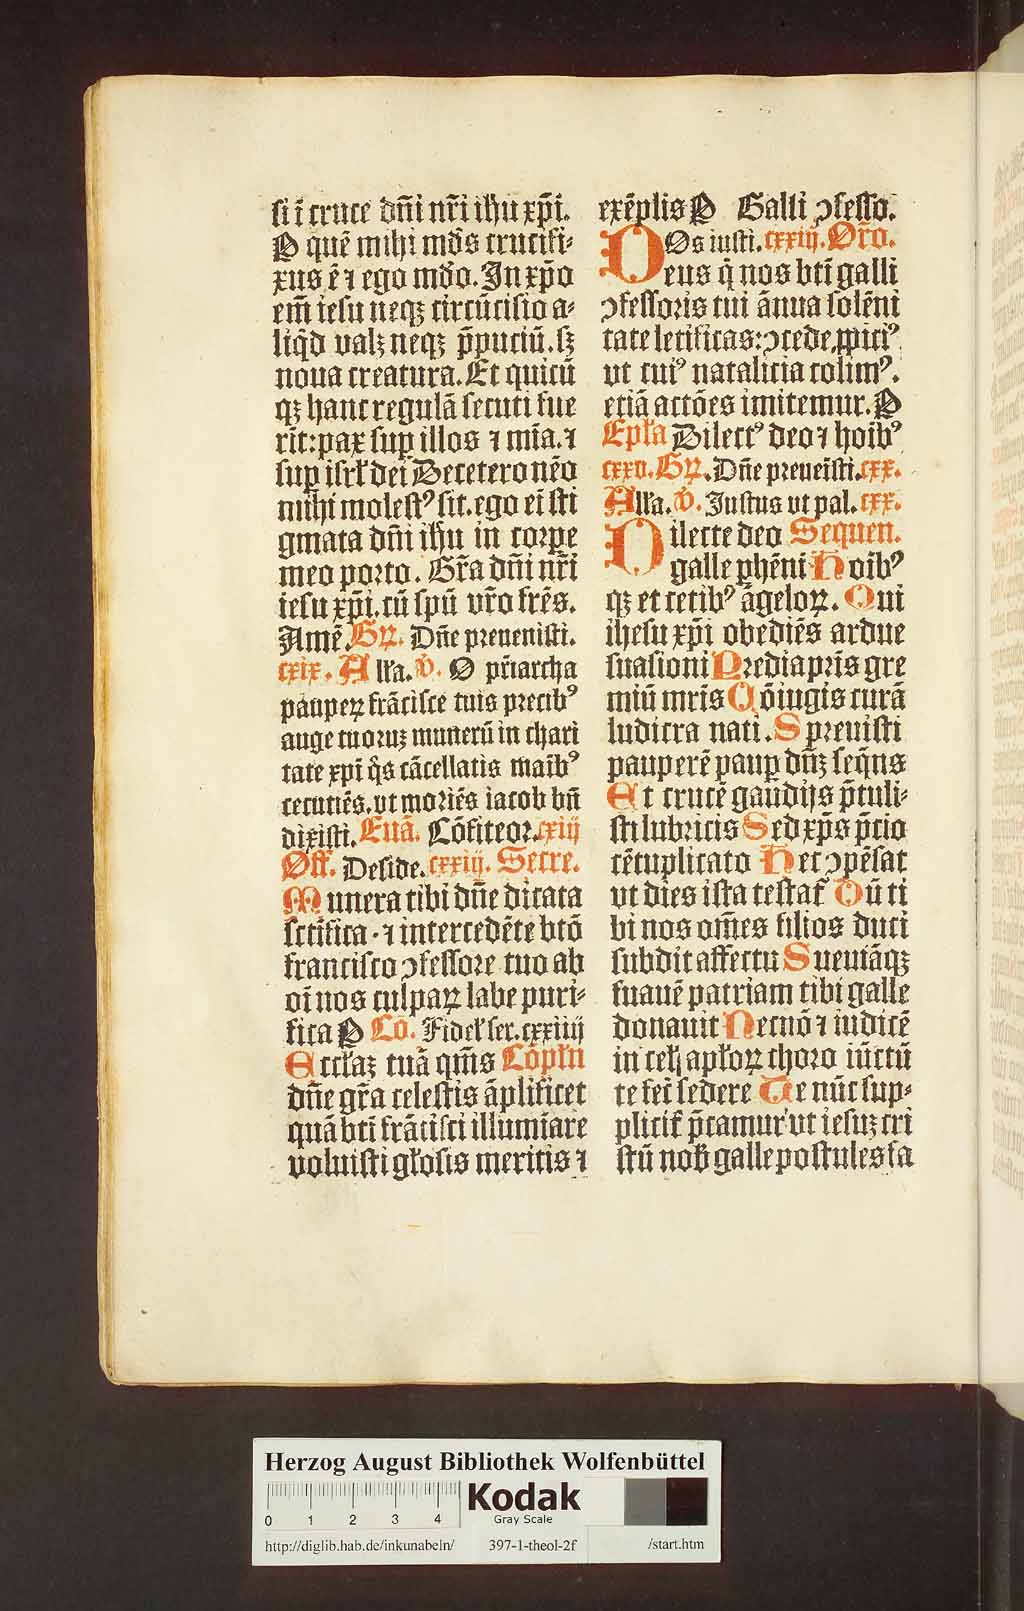 si ī cruce dn̄i nr̄i ih̄u xp̄i.
P quē mihi mūds crucifi⸗
xus ē ⁊ ego mūdo. In xp̄o
em̄ iesu neqꝫ circūcisio a⸗
liq̄d valꝫ neqꝫ p̄puciū. sꝫ
noua creatura. Et quicū
qꝫ hanc regulā secuti fue
rīt: pax suꝑ illos ⁊ mīa. ⁊
suꝑ isrł dei De cetero nēo
mihi molestꝰ sit. ego ei sti
gmata dn̄i ih̄u in corpe
meo porto. Gr̄a dn̄i nr̄i
iesu xp̄i. cū spū vr̄o fr̄es.
Amē. Gꝝ. Dn̄e preuenisti.
cxix. Alła. v̄. O pr̄iarcha
pauperꝝ frācisce tuis precibꝰ
auge tuoruꝫ munerū in chari
tate xp̄i q̄s cācellatis maībꝰ
cecutiēs. vt moriēs iacob bn̄
dixisti. Euā. Cōfiteor. cxiij
Off. Deside. cxxiij. Secre.
Munera tibi dn̄e dicata
sctīfica · ⁊ intercedēte btō
francisco ꝯfessore tuo ab
oī nos culparꝝ labe puri⸗
fica P Co. Fidel' ser. cxxiiij
Eccłaꝫ tuā qm̄s Cōpłn
dn̄e gr̄a celestis āplificet
quā bt̄i frācisci illumīare
voluisti głosis meritis ⁊
exēplis P Galli ꝯfesso.
Os iusti. cxxiij. Or̄o.
Deus q̄ nos bt̄i galli
ꝯfessoris tui ānua solēni
tate letificas: ꝯcede ꝓpiciꝰ
vt cuiꝰ natalicia colimꝰ.
eciā actōes imitemur. P
Epła Dilectꝰ deo ⁊ hoībꝰ
cxxv. Gꝝ. Dn̄e preueisti. cxx.
Alła. v̄. Iustus vt pal. cxx.
Dilecte deo Sequen.
galle ꝑhēni Hoībꝰ
qꝫ et cetibꝰ āgelorꝝ. Qui
ihesu xp̄i obediēs ardue
suasioni Predia pr̄is gre
miū mr̄is Cōiugis curā
ludicra nati. Spreuisti
pauperē paup dn̄ꝫ seq̄ns
Et crucē gaūdijs p̄tuli⸗
sti lubricis Sed xp̄s p̄cio
cētuplicato Hec ꝯpēsat
vt dies ista testaꝉ Dū ti
bi nos om̄es filios duci
subdit affectu Sueuiāqꝫ
suauē patriam tibi galle
donauit Necnō ⁊ iudicē
in cel' apłorꝝ choro iūctū
te feī sedere Te nūc sup⸗
plicit' p̄camur vt iesuꝫ cri
stū nob' galle postules fa
Herzog August Bibliothek Wolfenbüttel
0 1 2 3 4
Kodak
Gray Scale
http://diglib.hab.de/inkunabeln/ 397-1-theol-2f /start.htm